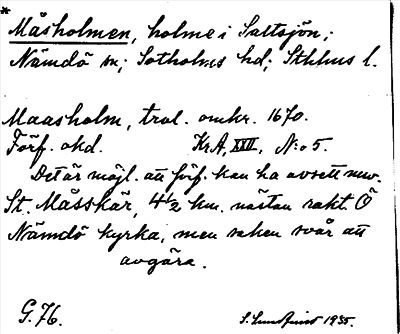 * Måsholmen, holme i Saltsjön;
Nämdö sn; Sotholms hd; Sthlms l.
Maasholm, trol. omkr. 1670.
Förf. okd. KrA, XXII, N:o 5.
Det är möjl. att förf. kan ha avsett nuv.
St. Måsskär, 4 1/2 km. nästan rakt Ö
Nämdö kyrka, men saken svår att
avgöra.
G. 76. S. Lundqvist 1935.